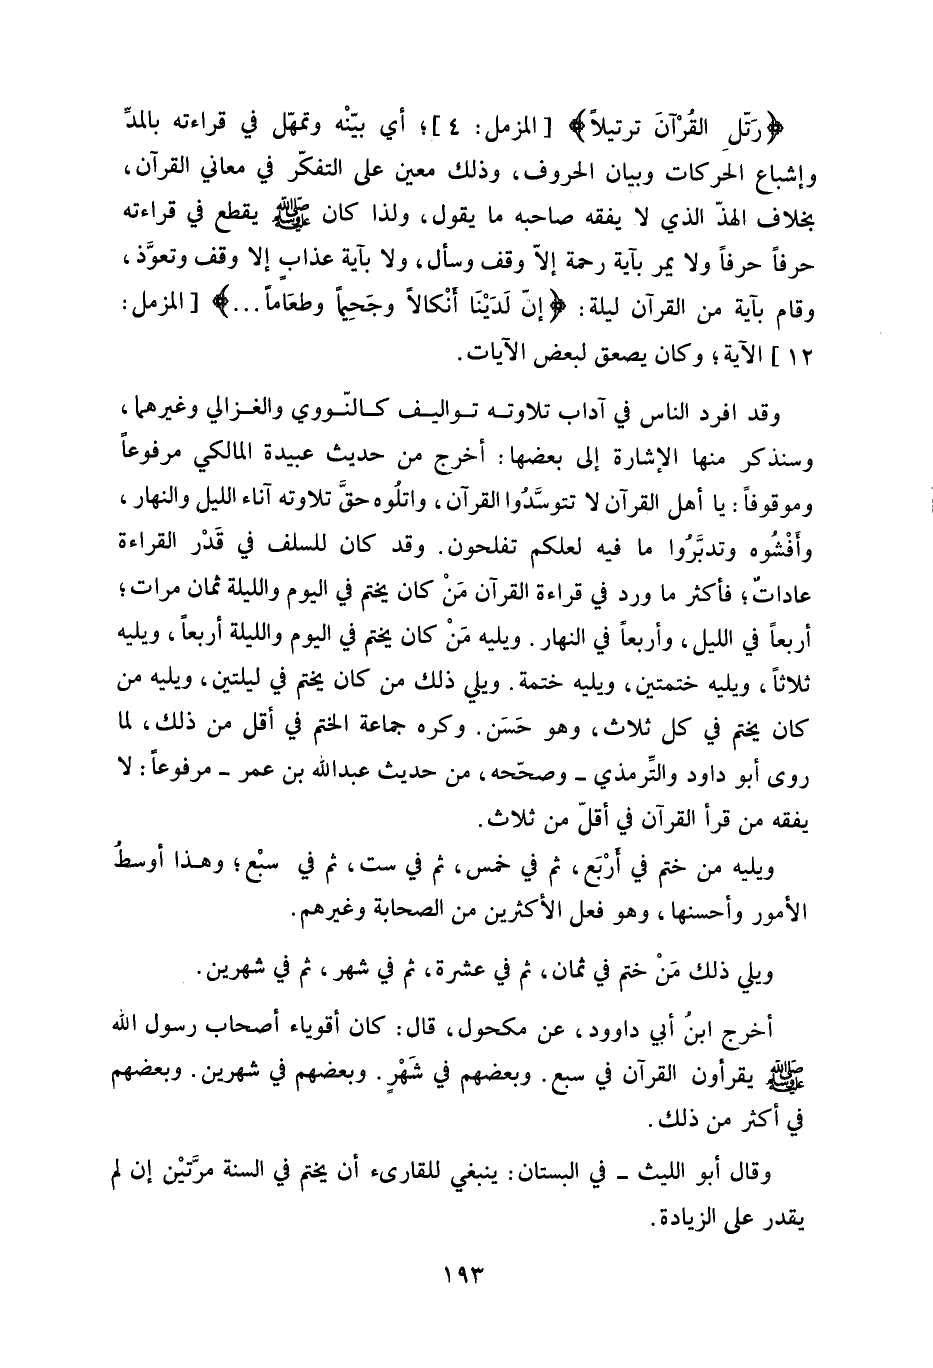 ﴿رَتِّلِ القُرْآنَ ترتيلاً﴾ [المزمل: ٤]؛ أي بيّنْه وتمهّل في قراءته بالمدِّ
وإشباع الحركات وبيان الحروف، وذلك معين على التفكّر في معاني القرآن،
بخلاف الهذّ الذي لا يفقه صاحبه ما يقول، ولذا كان ﷺ يقطع في قراءته
حرفاً حرفاً ولا يمر بآية رحمة إلاّ وقف وسأل، ولا بآية عذابٍ إلا وقف وتعوَّذ،
وقام بآية من القرآن ليلة: ﴿إنّ لَدَيْنَا أَنْكالاً وجَحِيماً وطعَاماً...﴾ [المزمل:
١٢] الآية؛ وكان يصعق لبعض الآيات.
وقد افرد الناس في آداب تلاوته تواليف كالنّووي والغزالي وغيرهما،
وسنذكر منها الإشارة إلى بعضها: أخرج من حديث عبيدة المالكي مرفوعاً
وموقوفاً: يا أهل القرآن لا تتوسَّدُوا القرآن، واتلُوه حقَّ تلاوته آناء الليل والنهار،
وأَفْشُوه وتدبَّرُوا ما فيه لعلكم تفلحون. وقد كان للسلف في قَدْر القراءة
عاداتٌ؛ فأكثر ما ورد في قراءة القرآن مَنْ كان يختم في اليوم والليلة ثمان مرات؛
أربعاً في الليل، وأربعاً في النهار. ويليه مَنْ كان يختم في اليوم والليلة أربعاً، ويليه
ثلاثاً، ويليه ختمتين، ويليه ختمة. ويلي ذلك من كان يختم في ليلتين، ويليه من
كان يختم في كل ثلاث، وهو حَسَن. وكره جماعة الختم في أقل من ذلك، لما
روى أبو داود والتِّرمذي ـ وصحّحه، من حديث عبدالله بن عمر ـ مرفوعاً: لا
يفقه من قرأ القرآن في أقلّ من ثلاث.
ويليه من ختم في أَرْبَع، ثم في خمس، ثم في ست، ثم في سبْع؛ وهذا أوسطُ
الأمور وأحسنها، وهو فعل الأكثرين من الصحابة وغيرهم.
ويلي ذلك مَنْ ختم في ثمان، ثم في عشرة، ثم في شهر، ثم في شهرين.
أخرج ابنُ أبي داوود، عن مكحول، قال: كان أقوياء أصحاب رسول الله
ﷺ يقرأون القرآن في سبع. وبعضهم في شَهْرٍ. وبعضهم في شهرين. وبعضهم
في أكثر من ذلك.
وقال أبو الليث ـ في البستان: ينبغي للقارىء أن يختم في السنة مرَّتيْن إن لم
يقدر على الزيادة.
١٩٣